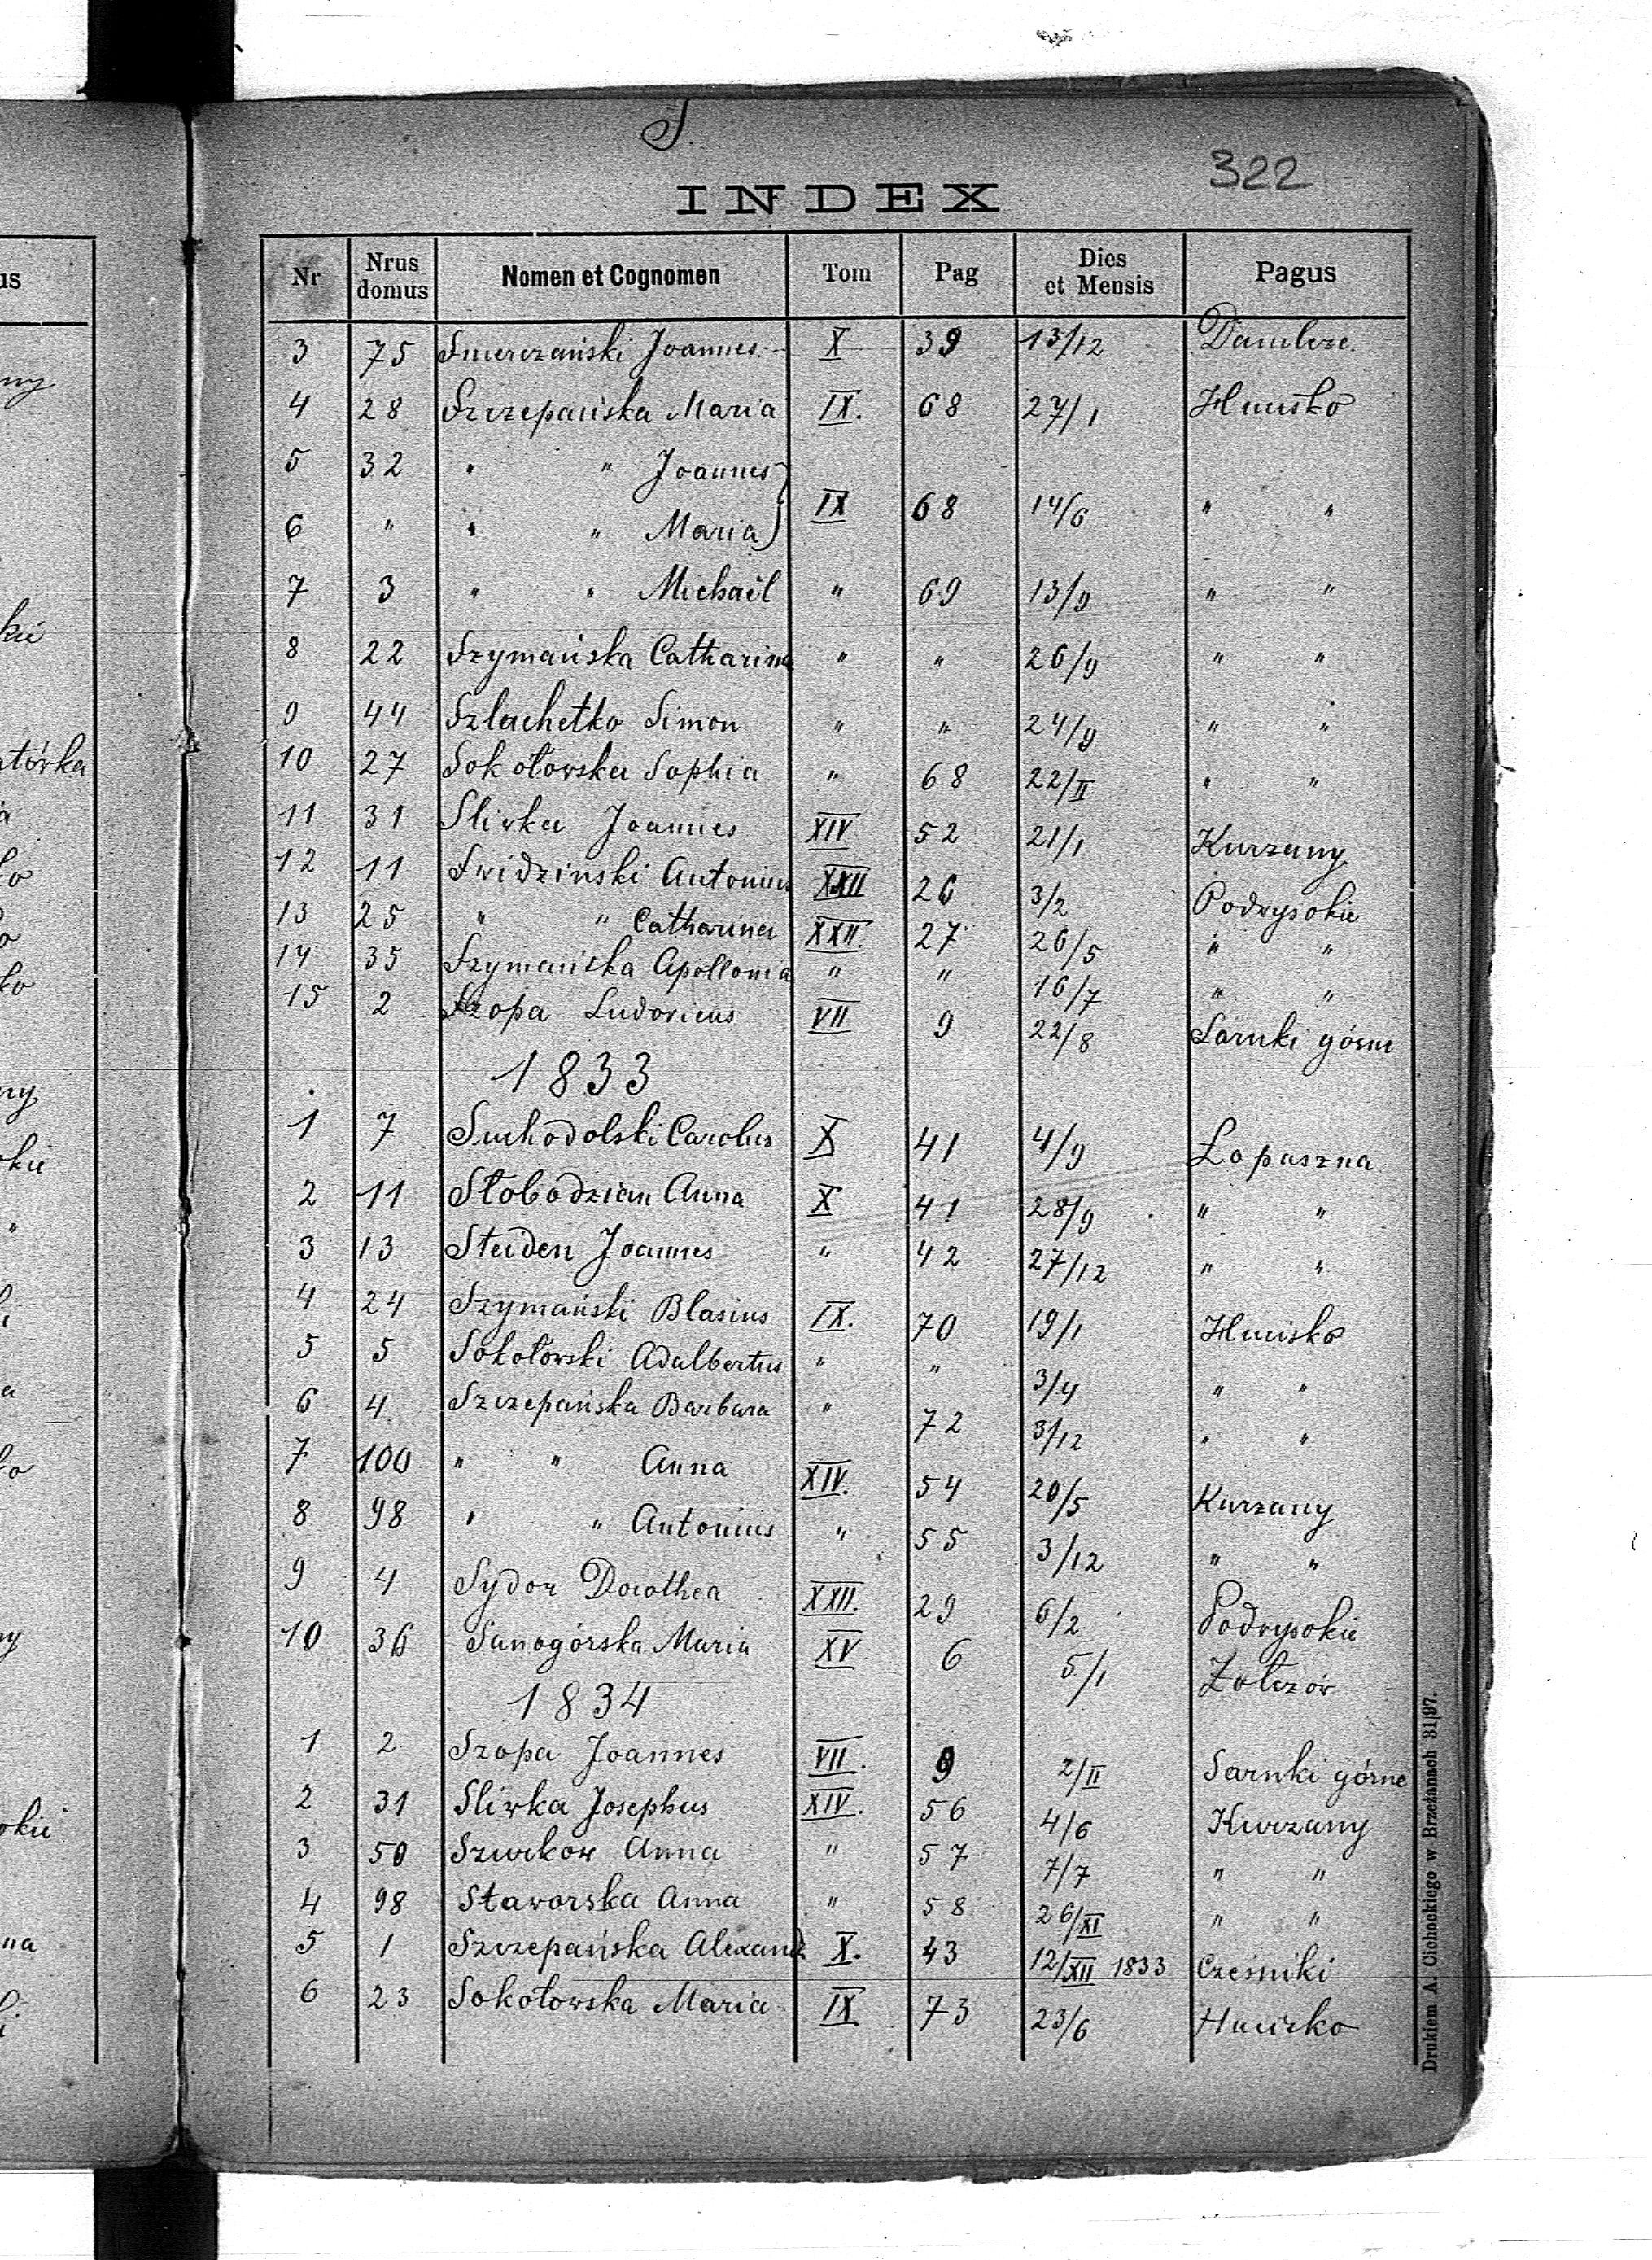 S.
322
INDEX
Nr | Nrus domus | Nomen et Cognomen | Tom | Pag | Dies et Mensis | Pagus
3 | 75 | Smerczański Joannes | X | 39 | 13/12 |
4 | 28 | Szczepańska Maria | IX. | 68 | 27/1 | Hnisko
5 | 32 | " " Joannes
IX | 68 | 14/6 | " "
6 | " | " " Maria
7 | 3 | " " Michaël | " | 69 | 13/9 | " "
8 | 22 | Szymańska Catharina | " | " | 26/9 | " "
9 | 44 | Szlachetko Simon | " | " | 24/9 | " "
10 | 27 | Sokołowska Sophia | " | 68 | 22/II | " "
11 | 31 | Sliwka Joannes | XIV | 52 | 21/1 | Kurzany
12 | 11 | Swidzinski Antonius | XXII | 26 | 3/2 | Podwysokie
13 | 25 | " " Catharina | XXII. | 27 | 26/5 | " "
14 | 35 | Szymańska Apollonia | " | " | 16/7 | " "
15 | 2 | Szopa Ludovicus | VII | 9 | 22/8 | Sarnki górne
1833
1 | 7 | Suchodolski Carolus | X | 41 | 4/9 | Łopuszna
2 | 11 | Słobodzian Anna | X | 41 | 28/9 | " "
3 | 13 | Studen Joannes | " | 42 | 27/12 | " "
4 | 24 | Szymański Blasius | IX. | 70 | 19/1 | Hnisko
5 | 5 | Sokołowski Adalbertus | " | " | 3/4 | " "
6 | 4 | Szczepańska Barbara | " | 72 | 3/12 | " "
7 | 100 | " " Anna | XIV. | 54 | 20/5 | Kurzany
8 | 98 | " " Antonius | " | 55 | 3/12 | " "
9 | 4 | Sydor Dorothea | XXII. | 29 | 6/2 | Podwysokie
10 | 36 | Sanogórska Maria | XV | 6 | 5/1 | Żołczów
1834
1 | 2 | Szopa Joannes | VII. | 9 | 2/II | Sarnki górne
2 | 31 | Sliwka Josephus | XIV. | 56 | 4/6 | Kurzany
3 | 50 | Szurkow Anna | " | 57 | 7/7 | " "
4 | 98 | Staworska Anna | " | 58 | 26/XI | " "
5 | 1 | Szczepańska Alexand | X. | 43 | 12/XII 1833 | Cześniki
6 | 23 | Sokołowska Maria | IX | 73 | 23/6 | Hnisko
Drukiem A. Cichockiego w Brzeżanach 31|97.